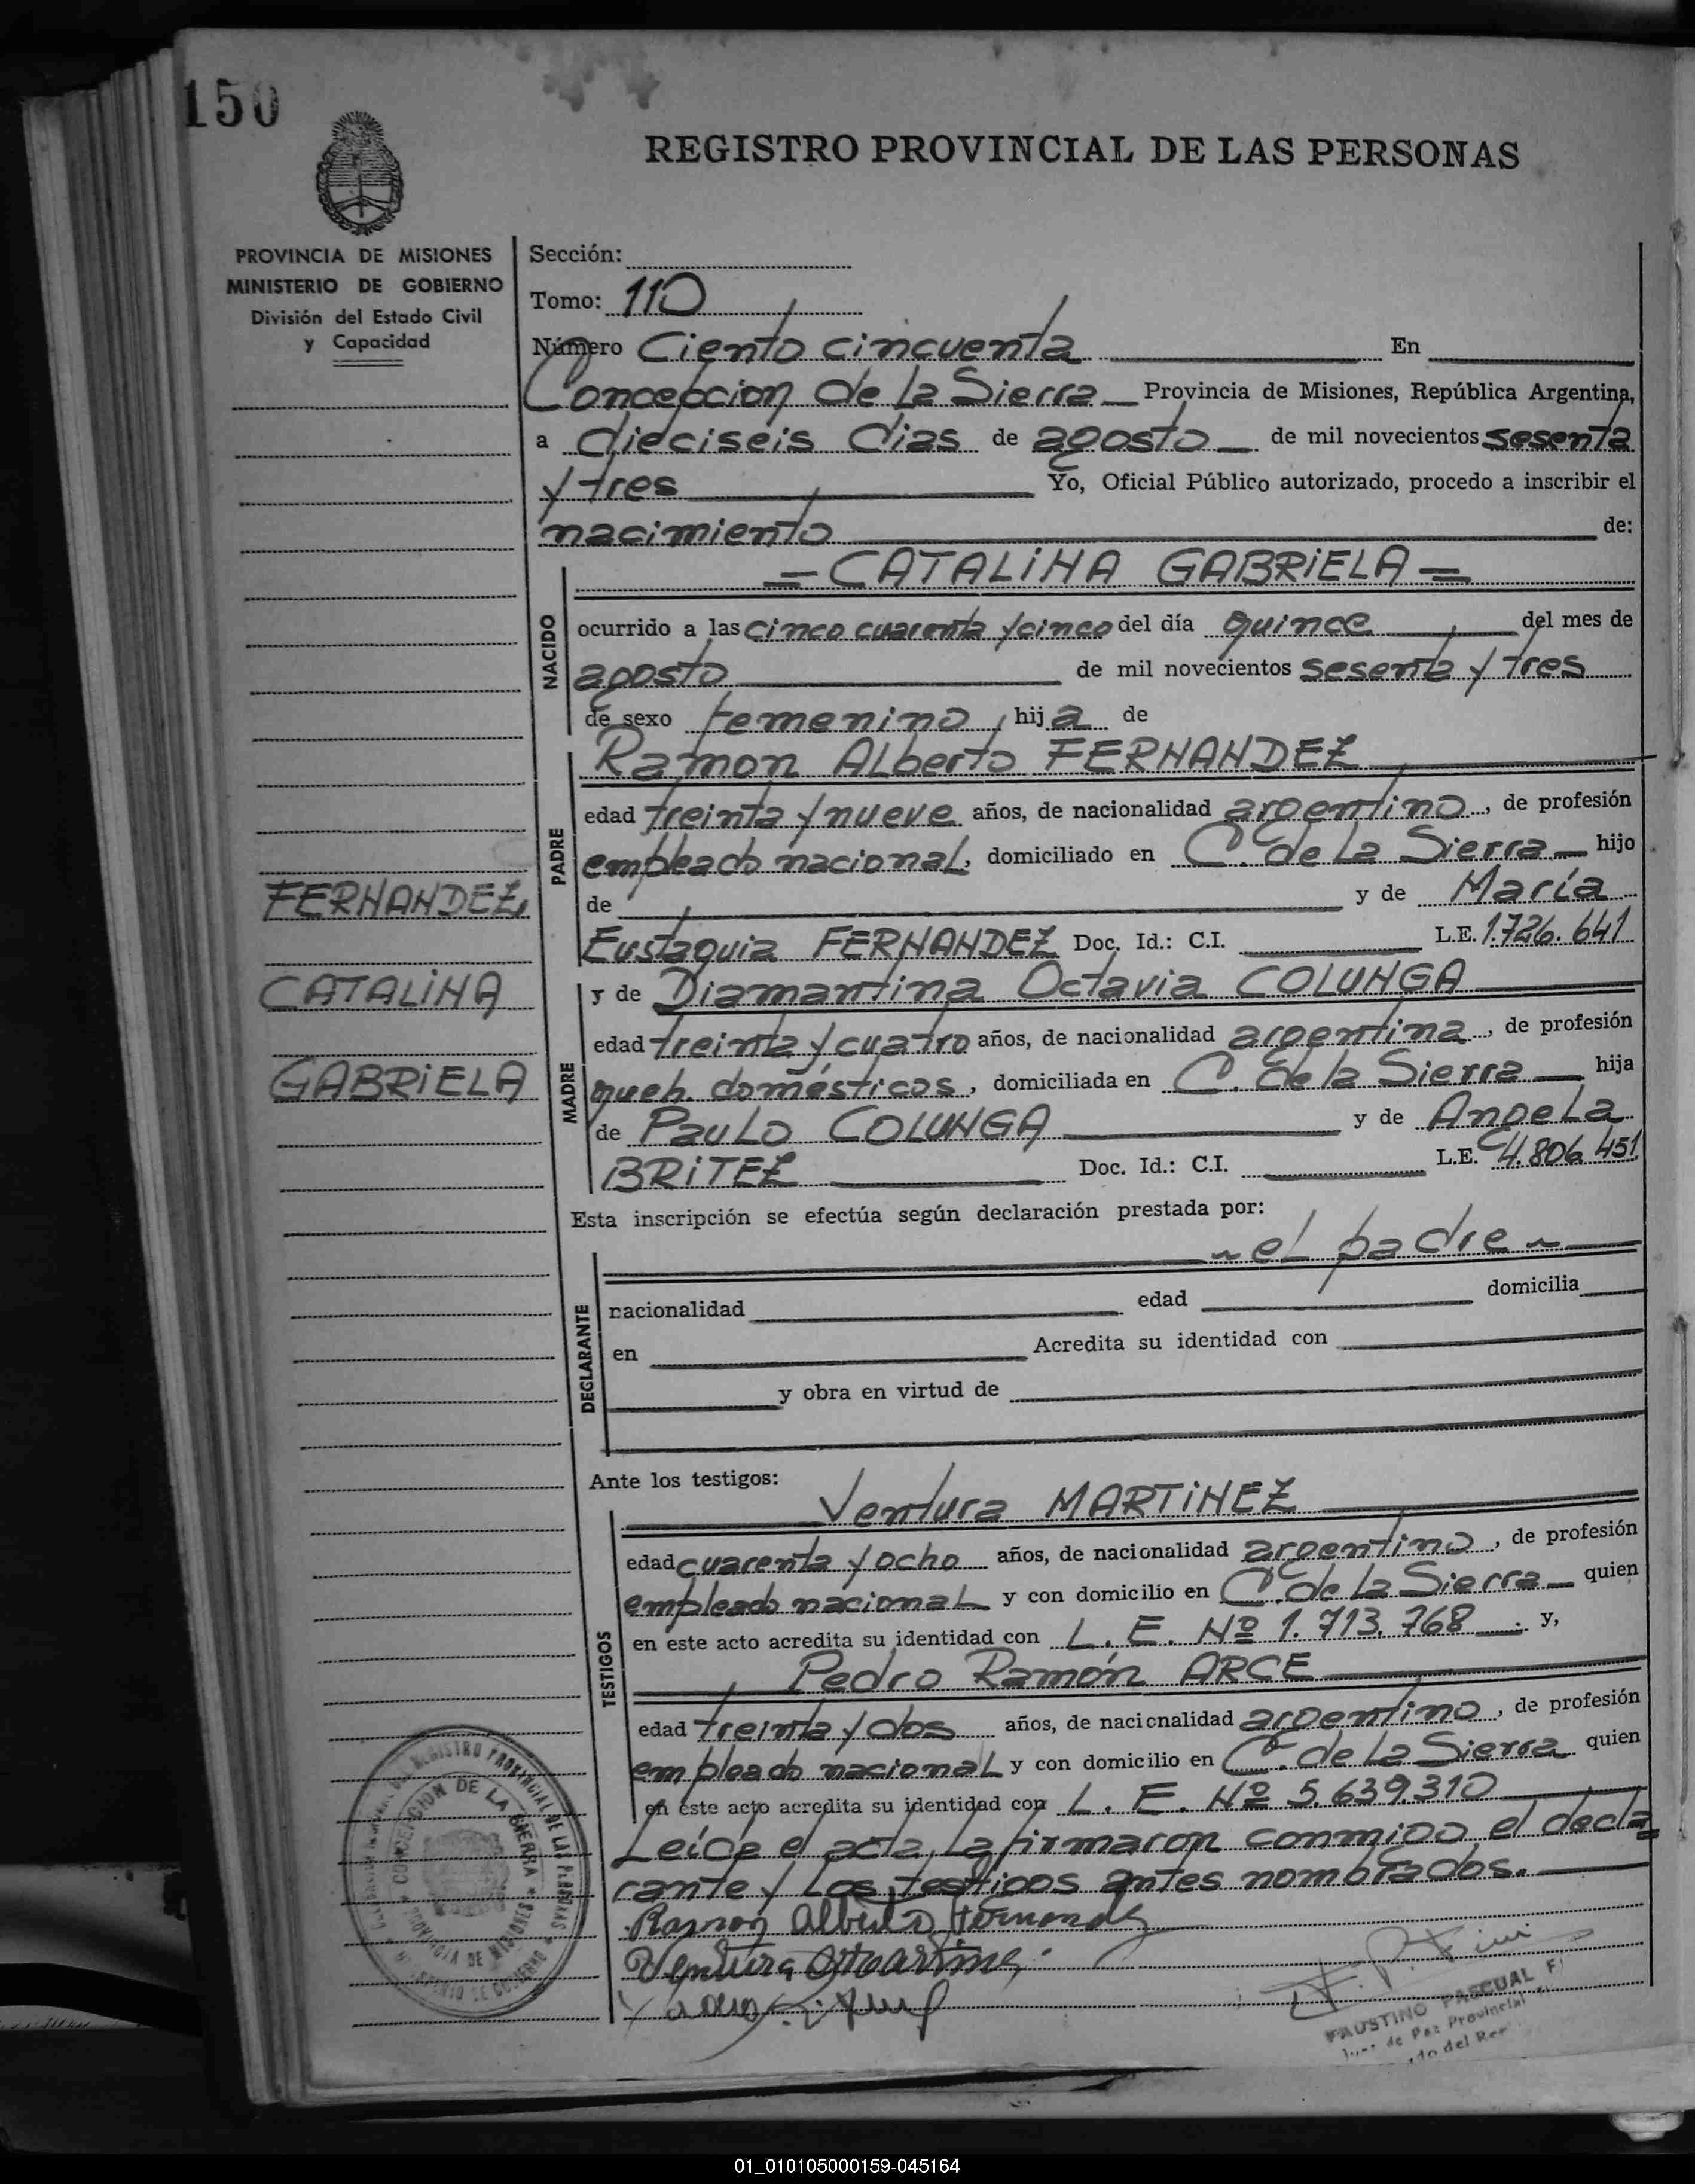 150
REGISTRO PROVINCIAL DE LAS PERSONAS
PROVINCIA DE MISIONES
MINISTERIO DE GOBIERNO
División del Estado Civil
y Capacidad
Sección:
Tomo: 110
Número Ciento cincuenta En
Concepcion de La Sierra Provincia de Misiones, República Argentina,
a dieciseis dias de agosto de mil novecientos sesenta
y tres Yo, Oficial Público autorizado, procedo a inscribir el
nacimiento de:
= CATALINA GABRIELA =
NACIDO
ocurrido a las cinco cuarenta y cinco del día quince del mes de
agosto de mil novecientos sesenta y tres
de sexo femenino, hija de
Ramon Alberto FERNANDEZ
PADRE
edad treinta y nueve años, de nacionalidad argentino, de profesión
empleado nacional, domiciliado en C. de La Sierra hijo
de y de María
Eustaquia FERNANDEZ Doc. Id.: C.I. L.E. 1.726.641
FERNANDEZ,
CATALINA
GABRIELA
y de Diamantina Octavia COLUNGA
MADRE
edad treinta y cuatro años, de nacionalidad argentina, de profesión
queh. domésticos, domiciliada en C. de la Sierra hija
de Paulo COLUNGA y de Angela
BRITEZ Doc. Id.: C.I. L.E. 4.806.451
Esta inscripción se efectúa según declaración prestada por:
~ el padre ~
DECLARANTE
nacionalidad edad domicilia
en Acredita su identidad con
y obra en virtud de
Ante los testigos:
Ventura MARTINEZ
TESTIGOS
edad cuarenta y ocho años, de nacionalidad argentino, de profesión
empleado nacional y con domicilio en C. de la Sierra quien
en este acto acredita su identidad con L. E. Nº 1.713.768 y,
Pedro Ramón ARCE
edad treinta y dos años, de nacionalidad argentino, de profesión
empleado nacional y con domicilio en C. de La Sierra quien
en este acto acredita su identidad con L. E. Nº 5.639.310
Leída el acta, La firmaron conmigo, el decla=
rante y Los testigos antes nombrados.
Ramon Alberto Fernandez
Ventura Martinez
REGISTRO PROVINCIAL DE LAS PERSONAS
CONCEPCION DE LA SIERRA
PROVINCIA DE MISIONES
MINISTERIO DE GOBIERNO
FAUSTINO PASCUAL F
Juez de Paz Provincial
do del Re
01_010105000159-045164